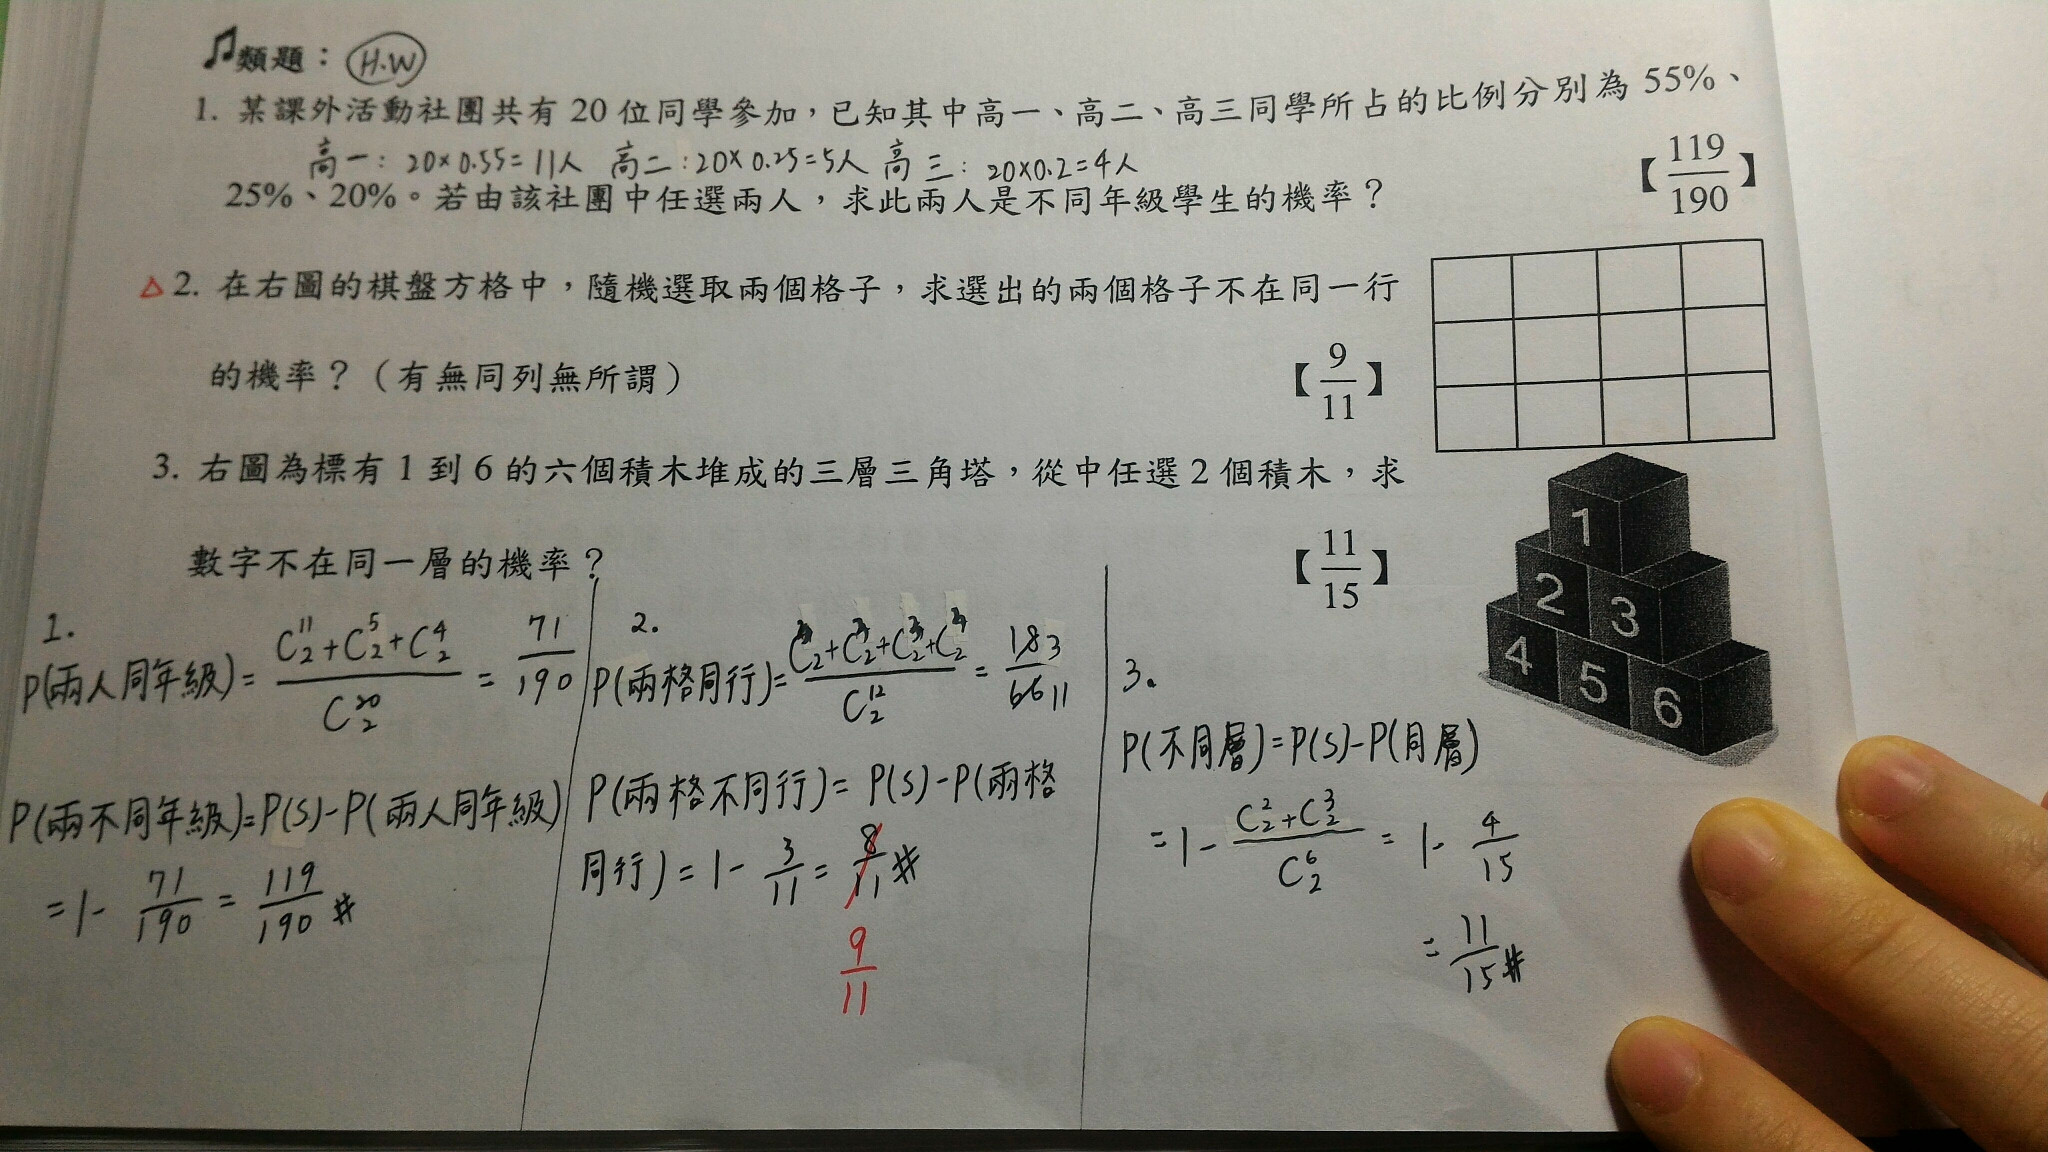 ♫類題： H.W
1. 某課外活動社團共有 20 位同學參加，已知其中高一、高二、高三同學所占的比例分別為 55%、
高一: 20×0.55=11人 高二:20×0.25=5人 高三: 20×0.2=4人
25%、20%。若由該社團中任選兩人，求此兩人是不同年級學生的機率？ 【119/190】
△2. 在右圖的棋盤方格中，隨機選取兩個格子，求選出的兩個格子不在同一行
的機率？（有無同列無所謂） 【9/11】
3. 右圖為標有 1 到 6 的六個積木堆成的三層三角塔，從中任選 2 個積木，求
數字不在同一層的機率？ 【11/15】
1
2 3
4 5 6
1.
P(兩人同年級)= (C¹¹₂+C⁵₂+C⁴₂)/C²⁰₂ = 71/190
P(兩不同年級)=P(S)-P(兩人同年級)
=1- 71/190 = 119/190 #
2.
P(兩格同行)= (C₂+C₂+C³₂+C₂)/C¹²₂ = 18/66 3/11
P(兩格不同行)= P(S)-P(兩格
同行)=1- 3/11 = 8/11 #
9/11
3.
P(不同層)=P(S)-P(同層)
=1- (C²₂+C³₂)/C⁶₂ = 1- 4/15
= 11/15 #